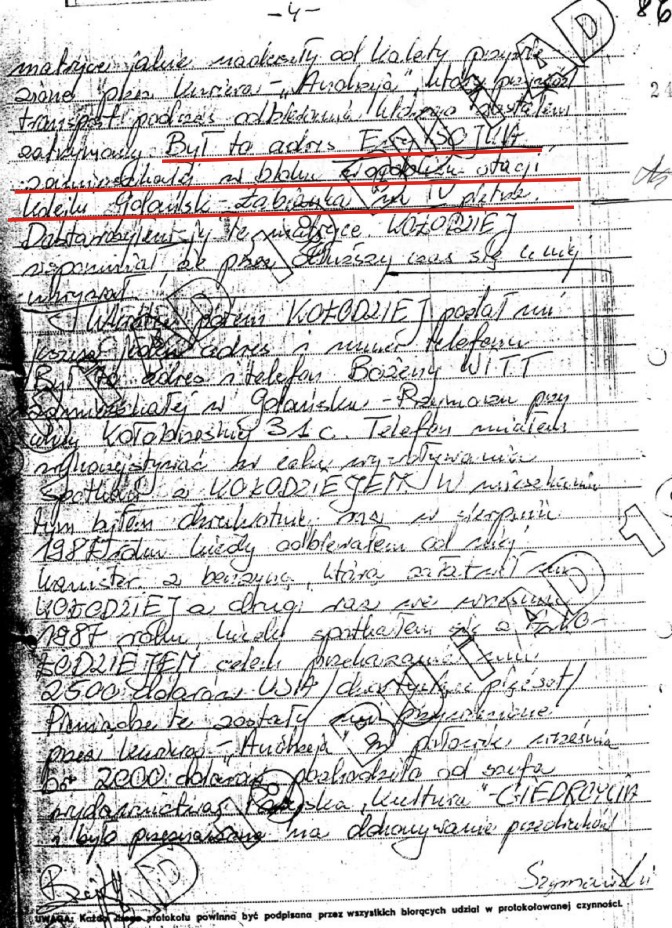 -4-
86
matryce jakie nadeszły od Kalety przywie
zione przez kuriera - „Andrzeja", który przywiózł
transport podczas odbierania którego zostałem
zatrzymany. Był to adres
zamieszkałej w bloku w pobliżu stacji
kolejki Gdańsk - Żabianka na IV piętrze.
Dostarczyłem jej te matryce. KOŁODZIEJ
wspominał że przez dłuższy czas się u niej
ukrywał.
potem KOŁODZIEJ podał mi
jeszcze jeden adres i numer telefonu
Był to adres i telefon Bożeny WITT
zamieszkałej w Gdańsku - Przymorzu przy
ulicy Kołobrzeskiej 31c. Telefon miałem
wykorzystywać w celu wywoływania
spotkań z KOŁODZIEJEM. W mieszkaniu
tym byłem dwukrotnie, raz w sierpniu
1987 roku kiedy odbierałem od niej
kanister z benzyną, którą załatwił mi
KOŁODZIEJ a drugi raz we wrześniu
1987 roku kiedy spotkałem się z KO-
ŁODZIEJEM celem przekazania mu
2500 dolarów USA /dwa tysiące pięćset/
Pieniądze te zostały mi przywiezione
przez kuriera - „Andrzeja" w połowie września
2000 dolarów pochodziło od szefa
wydawnictwa Paryska „Kultura" - GIEDROYCIA
i było przeznaczone na dokonywanie przedruków
Szymański
UWAGA: Każda strona protokołu powinna być podpisana przez wszystkich biorących udział w protokołowanej czynności.